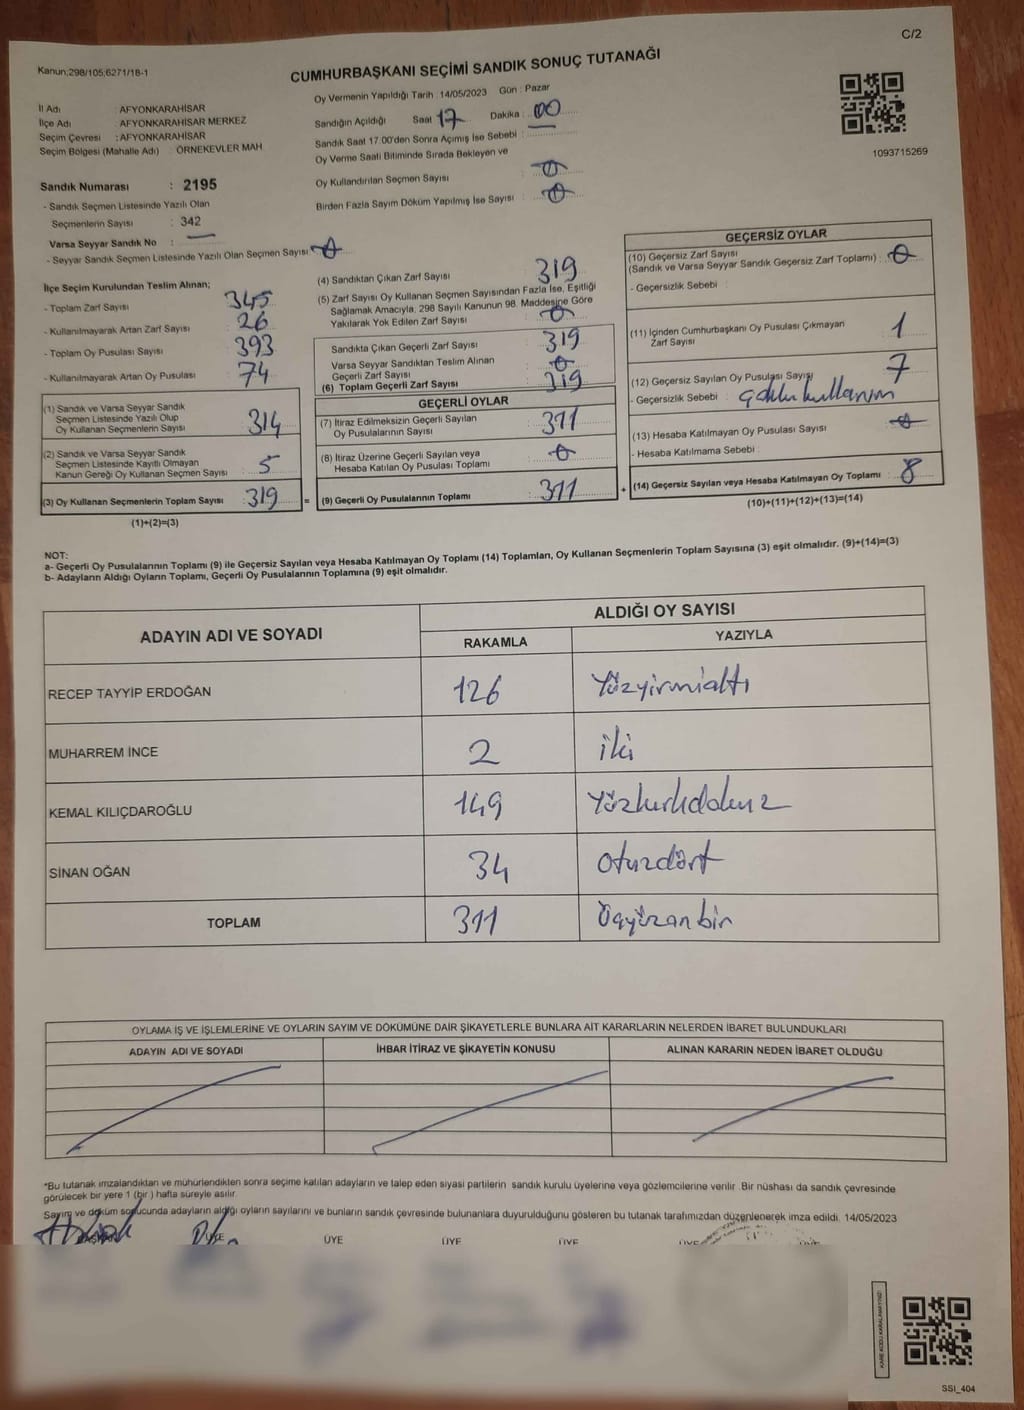 C/2
Kanun;298/105;6271/18-1
CUMHURBAŞKANI SEÇİMİ SANDIK SONUÇ TUTANAĞI
İl Adı : AFYONKARAHİSAR
İlçe Adı : AFYONKARAHİSAR MERKEZ
Seçim Çevresi : AFYONKARAHİSAR
Seçim Bölgesi (Mahalle Adı) : ÖRNEKEVLER MAH
Sandık Numarası : 2195
- Sandık Seçmen Listesinde Yazılı Olan
Seçmenlerin Sayısı : 342
Varsa Seyyar Sandık No : —
- Seyyar Sandık Seçmen Listesinde Yazılı Olan Seçmen Sayısı : 0
Oy Vermenin Yapıldığı Tarih : 14/05/2023 Gün : Pazar
Sandığın Açıldığı Saat 17 Dakika : 00
Sandık Saat 17:00'den Sonra Açılmış İse Sebebi : —
Oy Verme Saati Bitiminde Sırada Bekleyen ve
Oy Kullandırılan Seçmen Sayısı : 0
Birden Fazla Sayım Döküm Yapılmış İse Sayısı : 0
1093715269
İlçe Seçim Kurulundan Teslim Alınan;
- Toplam Zarf Sayısı : 345
- Kullanılmayarak Artan Zarf Sayısı : 26
- Toplam Oy Pusulası Sayısı : 393
- Kullanılmayarak Artan Oy Pusulası : 74
(1) Sandık ve Varsa Seyyar Sandık
Seçmen Listesinde Yazılı Olup
Oy Kullanan Seçmenlerin Sayısı : 314
(2) Sandık ve Varsa Seyyar Sandık
Seçmen Listesinde Kayıtlı Olmayan
Kanun Gereği Oy Kullanan Seçmen Sayısı : 5
(3) Oy Kullanan Seçmenlerin Toplam Sayısı : 319
(1)+(2)=(3)
(4) Sandıktan Çıkan Zarf Sayısı : 319
(5) Zarf Sayısı Oy Kullanan Seçmen Sayısından Fazla İse, Eşitliği
Sağlamak Amacıyla, 298 Sayılı Kanunun 98. Maddesine Göre
Yakılarak Yok Edilen Zarf Sayısı : 0
Sandıkta Çıkan Geçerli Zarf Sayısı : 319
Varsa Seyyar Sandıktan Teslim Alınan
Geçerli Zarf Sayısı : 0
(6) Toplam Geçerli Zarf Sayısı : 319
GEÇERLİ OYLAR
(7) İtiraz Edilmeksizin Geçerli Sayılan
Oy Pusulalarının Sayısı : 311
(8) İtiraz Üzerine Geçerli Sayılan veya
Hesaba Katılan Oy Pusulası Toplamı : 0
= (9) Geçerli Oy Pusulalarının Toplamı : 311
GEÇERSİZ OYLAR
(10) Geçersiz Zarf Sayısı
(Sandık ve Varsa Seyyar Sandık Geçersiz Zarf Toplamı) : 0
- Geçersizlik Sebebi :
(11) İçinden Cumhurbaşkanı Oy Pusulası Çıkmayan
Zarf Sayısı : 1
(12) Geçersiz Sayılan Oy Pusulası Sayısı : 7
- Geçersizlik Sebebi : çoklu kullanım
(13) Hesaba Katılmayan Oy Pusulası Sayısı : 0
- Hesaba Katılmama Sebebi :
+ (14) Geçersiz Sayılan veya Hesaba Katılmayan Oy Toplamı : 8
(10)+(11)+(12)+(13)=(14)
NOT:
a- Geçerli Oy Pusulalarının Toplamı (9) ile Geçersiz Sayılan veya Hesaba Katılmayan Oy Toplamı (14) Toplamları, Oy Kullanan Seçmenlerin Toplam Sayısına (3) eşit olmalıdır. (9)+(14)=(3)
b- Adayların Aldığı Oyların Toplamı, Geçerli Oy Pusulalarının Toplamına (9) eşit olmalıdır.
ADAYIN ADI VE SOYADI ALDIĞI OY SAYISI
RAKAMLA YAZIYLA
RECEP TAYYİP ERDOĞAN 126 Yüzyirmialtı
MUHARREM İNCE 2 iki
KEMAL KILIÇDAROĞLU 149 Yüzkırkdokuz
SİNAN OĞAN 34 otuzdört
TOPLAM 311 Üçyüzonbir
OYLAMA İŞ VE İŞLEMLERİNE VE OYLARIN SAYIM VE DÖKÜMÜNE DAİR ŞİKAYETLERLE BUNLARA AİT KARARLARIN NELERDEN İBARET BULUNDUKLARI
ADAYIN ADI VE SOYADI İHBAR İTİRAZ VE ŞİKAYETİN KONUSU ALINAN KARARIN NEDEN İBARET OLDUĞU
*Bu tutanak imzalandıktan ve mühürlendikten sonra seçime katılan adayların ve talep eden siyasi partilerin sandık kurulu üyelerine veya gözlemcilerine verilir. Bir nüshası da sandık çevresinde
görülecek bir yere 1 (bir ) hafta süreyle asılır.
Sayım ve döküm sonucunda adayların aldığı oyların sayılarını ve bunların sandık çevresinde bulunanlara duyurulduğunu gösteren bu tutanak tarafımızdan düzenlenerek imza edildi. 14/05/2023
BAŞKAN ÜYE ÜYE ÜYE ÜYE ÜYE
KARE KODU KARALAMAYINIZ!
SSI_404